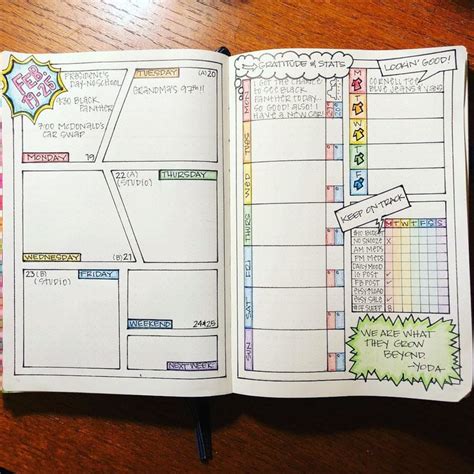 FEB.
19-25
PRESIDENT'S
DAY-NO SCHOOL
9:30 BLACK
PANTHER
7:00 McDONALD'S
CAR SWAP
MONDAY 19
TUESDAY (A) 20
GRANDMA'S 97TH!!
WEDNESDAY (B) 21
22 (A) THURSDAY
(STUDIO)
23 (B) FRIDAY
(STUDIO)
WEEKEND 24&25
NEXT WEEK
GRATITUDE & STATS
GOT THE CHANCE
TO SEE BLACK
PANTHER TODAY...
SO GOOD! ALSO! I
HAVE A NEW CAR!
MON
TUES
WED
THU
FRI
SAT
SUN
LOOKIN' GOOD!
M
CORNELL TEE
BLUE JEANS & VANS
T
W
T
F
KEEP ON TRACK
M T W T F S S
NO SNOOZE X
AM MEDS
PM MEDS
DAILY MOOD
IG POST
FB POST
ETSY SALE
WE ARE WHAT
THEY GROW
BEYOND.
-YODA-